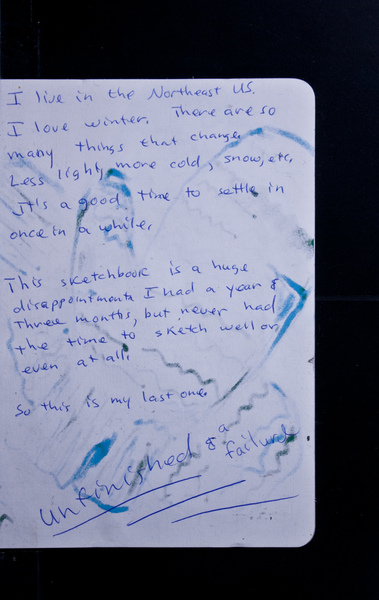 I live in the Northeast US.
I love winter. There are so
many things that change.
Less light, more cold, snow, etc.
It's a good time to settle in
once in a while.
This sketchbook is a huge
disappointment. I had a year &
three months, but never had
the time to sketch well or
even at all.
So this is my last one.
unfinished & a
failure